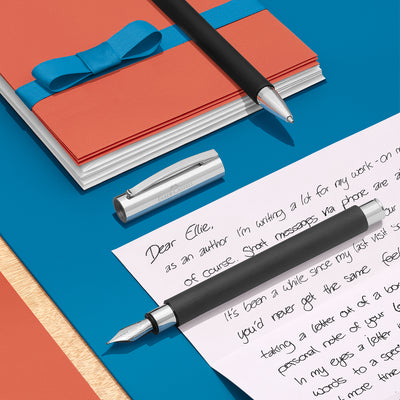 Dear Ellie,
as an author I'm writing a lot for my work - on m
of course short messages via phone are a
It's been a while since my last visit
you'd never get the same feel
taking a letter out of a bo
personal note of your
In my eyes a letter i
words to a spec
more time